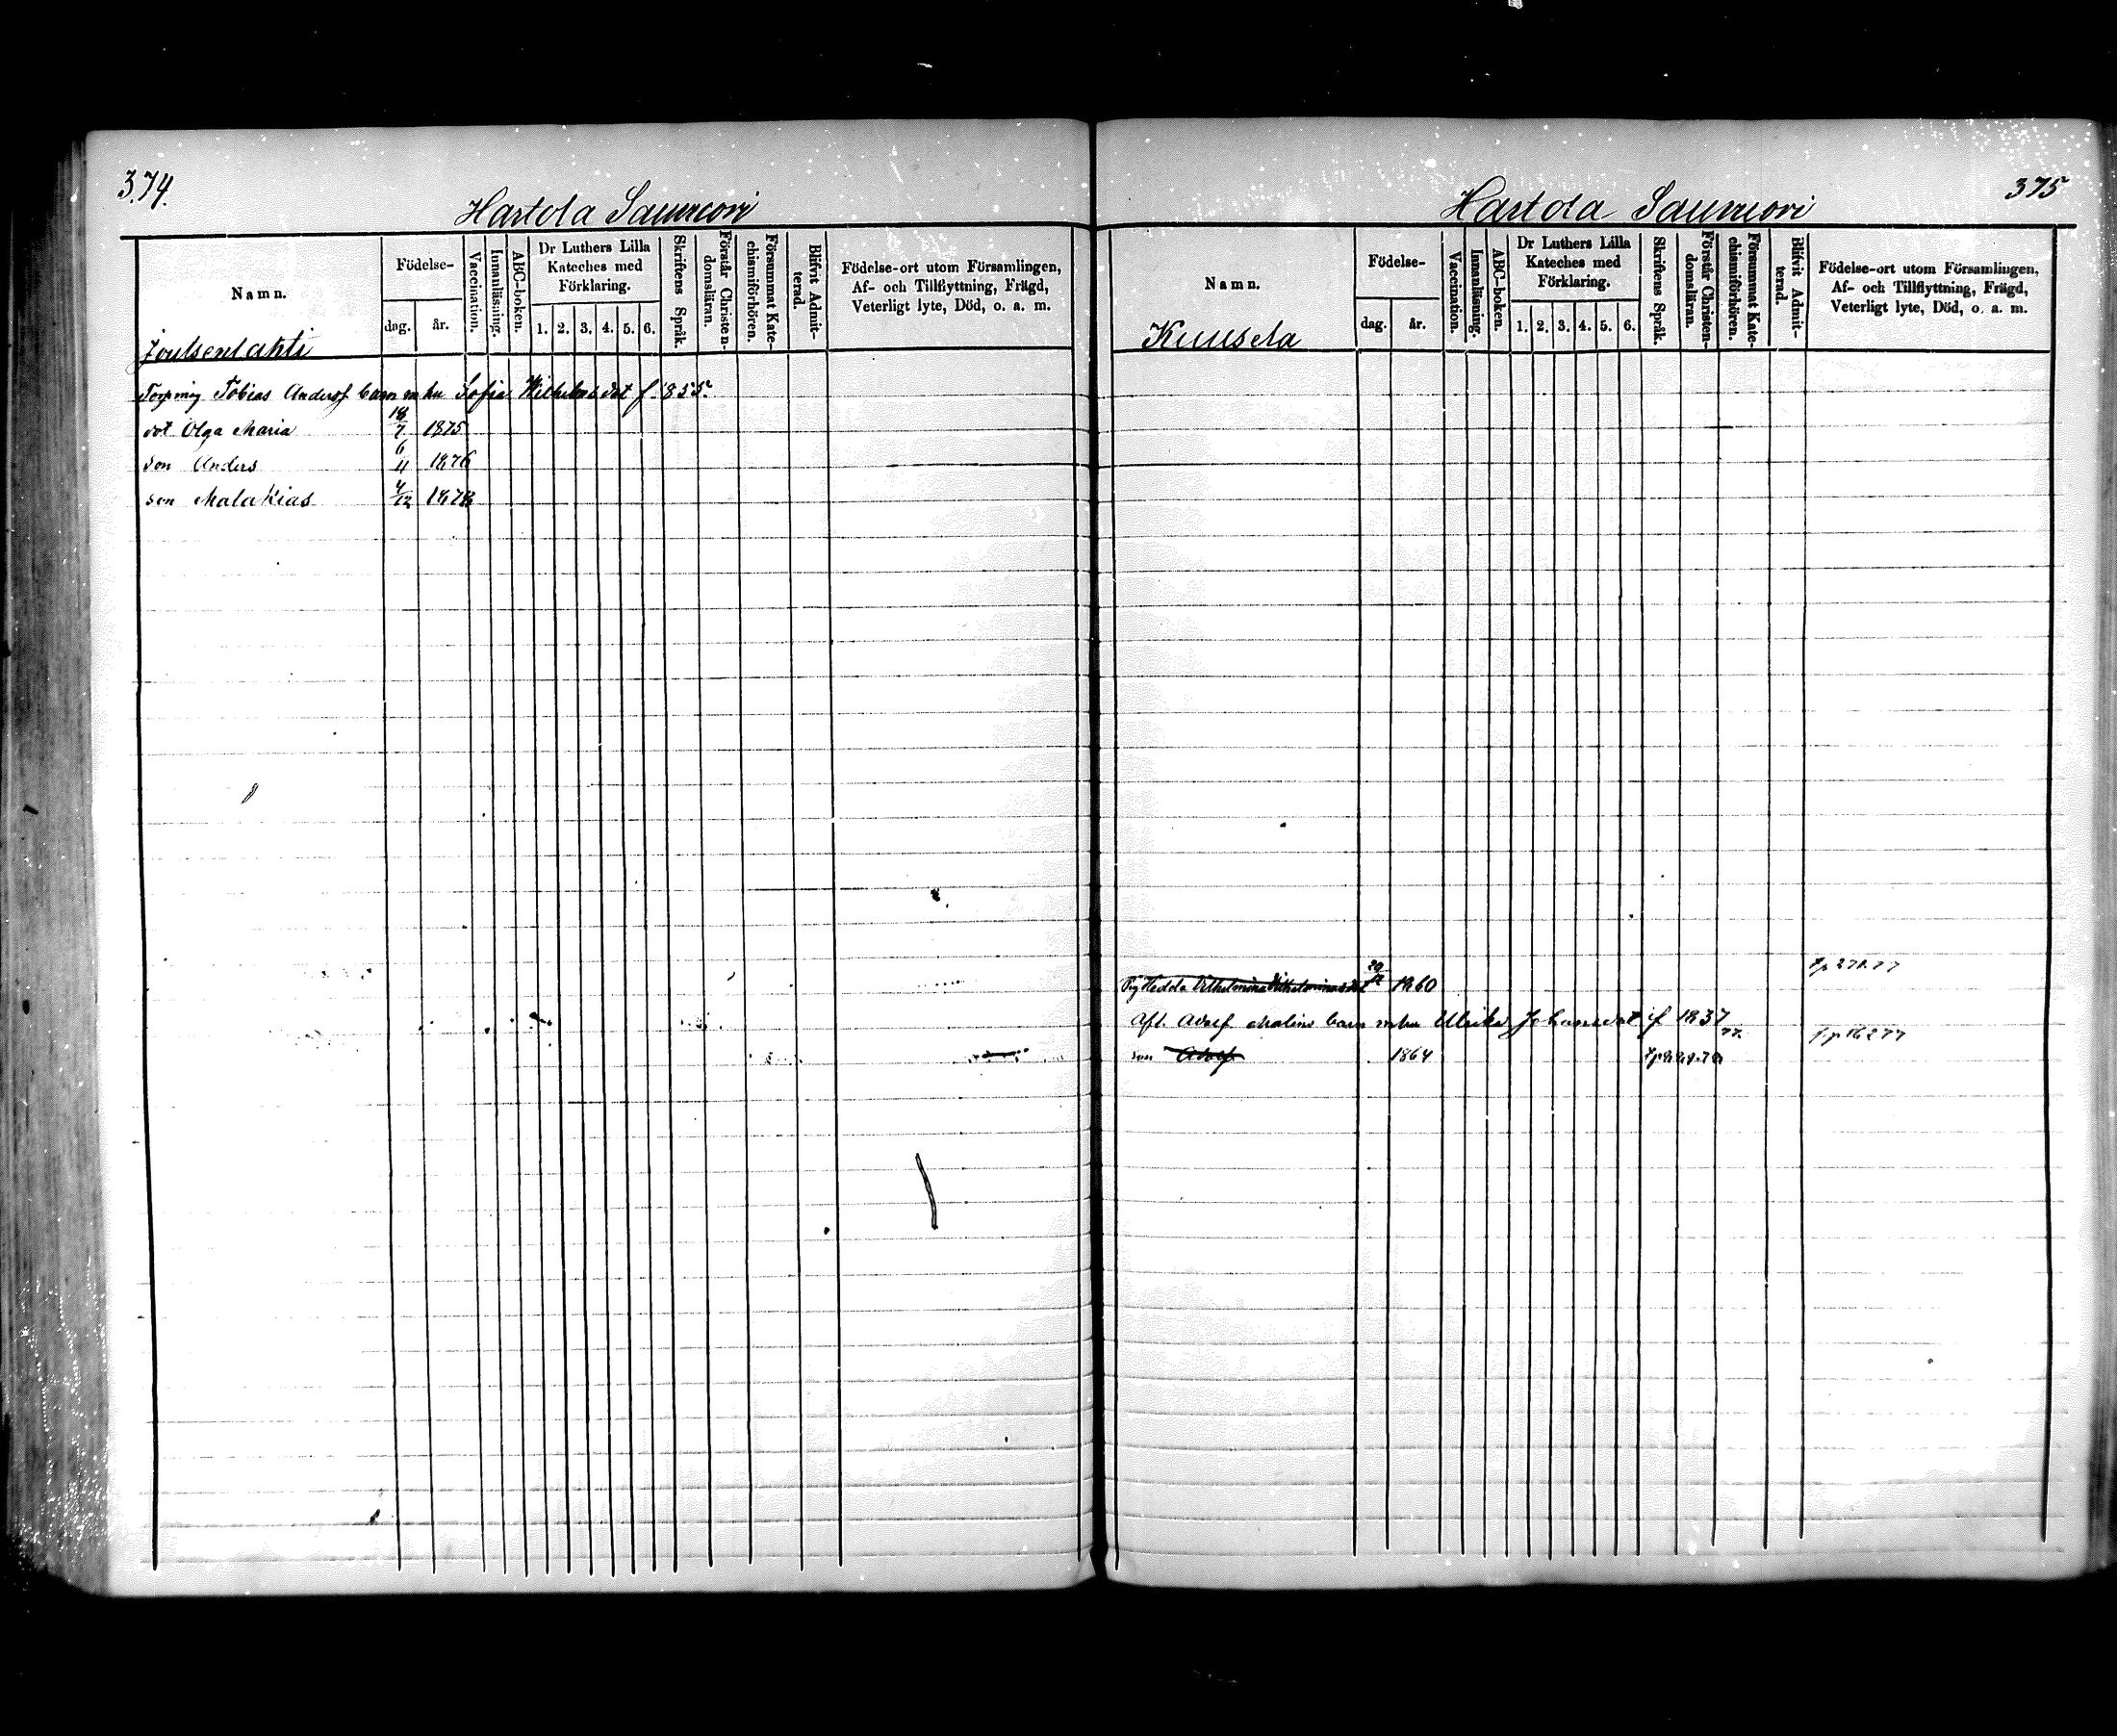 374.
Hartola Saumiori
Namn.
Födelse-
dag.
år.
Vaccination.
Innanläsning.
ABC-boken.
Dr Luthers Lilla
Kateches med
Förklaring.
1. 2. 3. 4. 5. 6.
Skriftens Språk.
Förstår Christen-
domsläran.
Försummat Kate-
chismiförhören.
Blifvit Admit-
terad.
Födelse-ort utom Församlingen,
Af- och Tillflyttning, Frägd,
Veterligt lyte, Död, o. a. m.
Joutsenlahti
Tobias Anderss barn m hu Sofia Wilhelmsdot f. 855.
dot Olga Maria 18/7 1875
son Anders 6/4 1876
son Malakias 4/12 1878
375
Hartola Saumiori
Namn.
Födelse-
dag.
år.
Vaccination.
Innanläsning.
ABC-boken.
Dr Luthers Lilla
Kateches med
Förklaring.
1. 2. 3. 4. 5. 6.
Skriftens Språk.
Förstår Christen-
domsläran.
Försummat Kate-
chismiförhören.
Blifvit Admit-
terad.
Födelse-ort utom Församlingen,
Af- och Tillflyttning, Frägd,
Veterligt lyte, Död, o. a. m.
Kuusela
Pig Hedda Vilhelmina Vilhelminasdot 1860
Afl. Adolf Malins barn m hu Ulrika Johansdot f 1837
son Adolf 1864